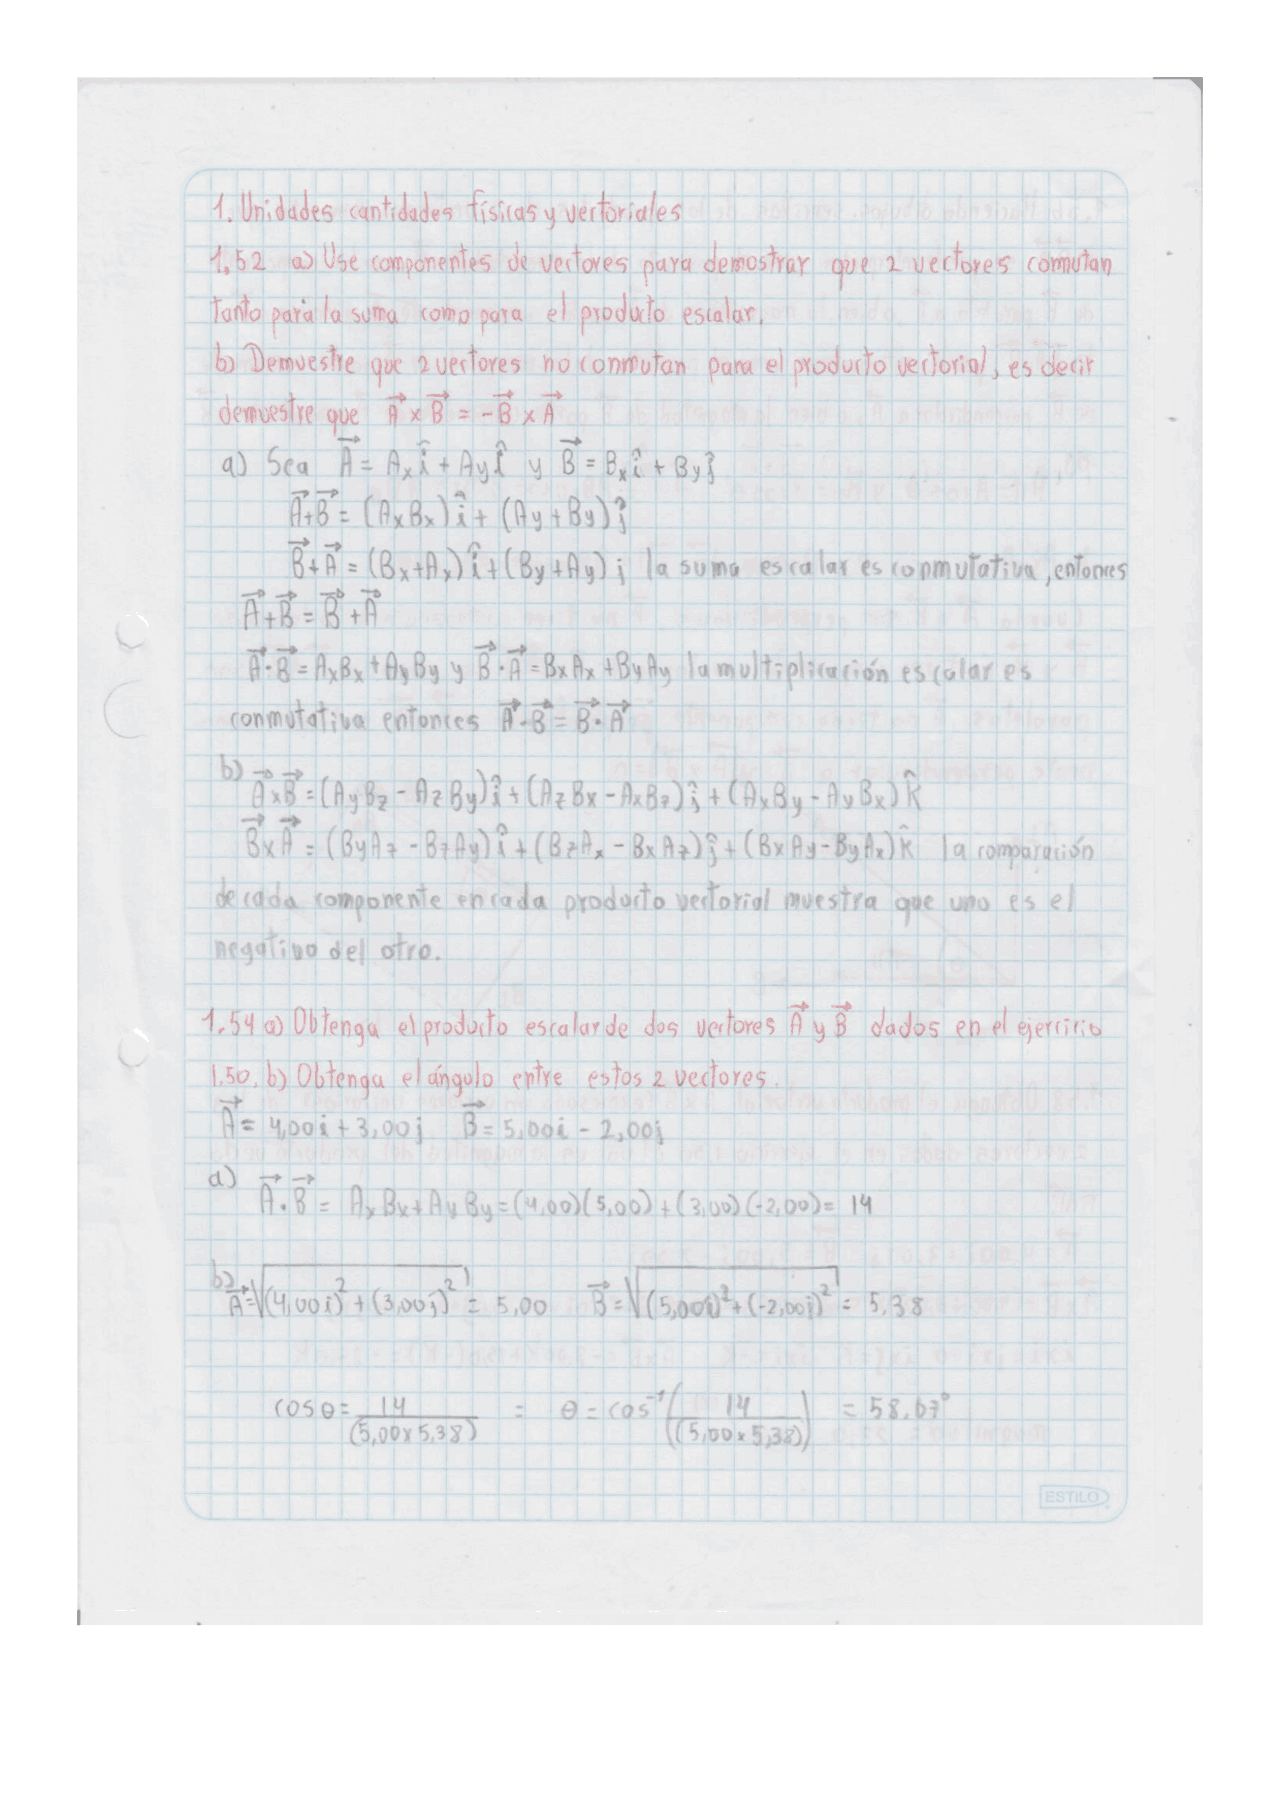 1. Unidades cantidades físicas y vectoriales
1.52 a) Use componentes de vectores para demostrar que 2 vectores conmutan
tanto para la suma como para el producto escalar.
b) Demuestre que 2 vectores no conmutan para el producto vectorial, es decir
demuestre que A⃗ × B⃗ = -B⃗ × A⃗
a) Sea A⃗ = Axî + Ayî y B⃗ = Bxî + Byĵ
A⃗+B⃗ = (AxBx)î + (Ay + By)ĵ
B⃗+A⃗ = (Bx+Ax)î+(By+Ay)j la suma escalar es conmutativa, entonces
A⃗+B⃗ = B⃗+A⃗
A⃗·B⃗ = AxBx+AyBy y B⃗·A⃗ = BxAx+ByAy la multiplicación escalar es
conmutativa entonces A⃗·B⃗ = B⃗·A⃗
b)
A⃗×B⃗ = (AyBz - AzBy)î + (AzBx - AxBz)ĵ + (AxBy - AyBx)k̂
B⃗×A⃗ = (ByAz - BzAy)î + (BzAx - BxAz)ĵ + (BxAy - ByAx)k̂ la comparación
de cada componente en cada producto vectorial muestra que uno es el
negativo del otro.
1.54 a) Obtenga el producto escalar de dos vectores A⃗ y B⃗ dados en el ejercicio
1.50. b) Obtenga el ángulo entre estos 2 vectores.
A⃗ = 4,00i + 3,00j B⃗ = 5,00i - 2,00j
a) A⃗·B⃗ = AxBx+AyBy = (4,00)(5,00) + (3,00)(-2,00) = 14
b) A⃗=√(4,00i)² + (3,00j)² = 5,00 B⃗ = √(5,00i)² + (-2,00j)² = 5,38
cosθ = 14/(5,00x5,38) = θ = cos⁻¹(14/((5,00x5,38)) = 58,67°
ESTILO